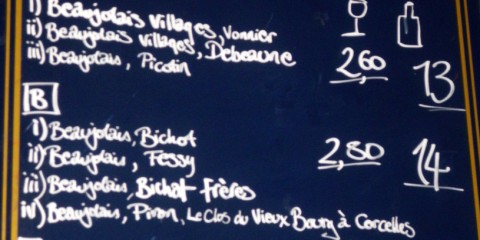 i) Beaujolais Villages, Vonnier
ii) Beaujolais Villages, Debeaune
iii) Beaujolais, Picotin
2,60 13
B
i) Beaujolais, Bichot
ii) Beaujolais, Fessy
2,80 14
iii) Beaujolais, Bichot Frères
iv) Beaujolais, Piron, Le Clos du Vieux Bourg à Corcelles